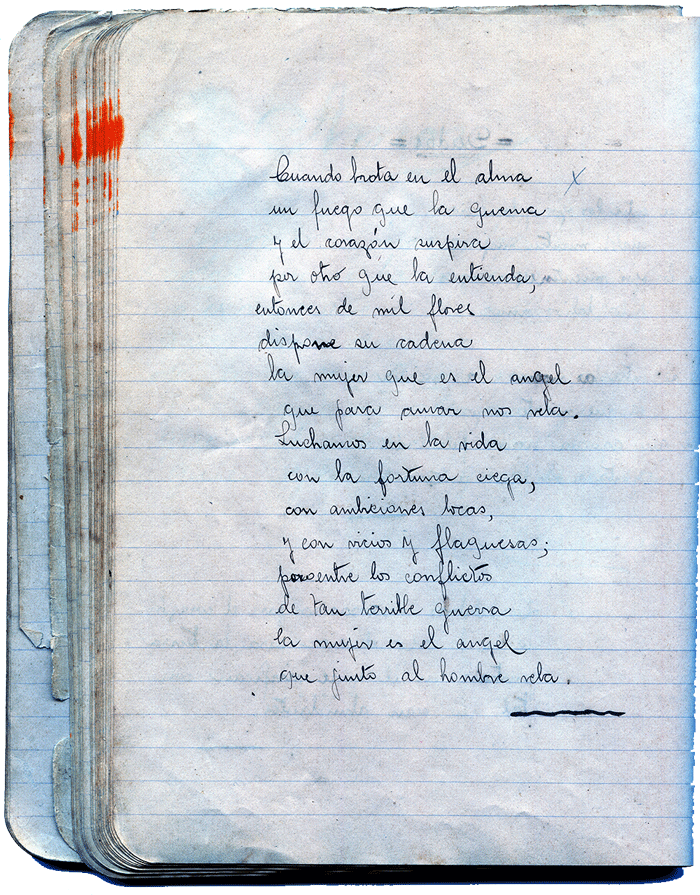 Cuando brota en el alma x
un fuego que la quema
y el corazón suspira
por otro que la entienda,
entonces de mil flores
dispone su cadena
la mujer que es el angel
que para amar nos vela.
Luchamos en la vida
con la fortuna ciega,
con ambiciones locas,
y con vicios y flaguesas;
pero entre los conflictos
de tan terrible guerra
la mujer es el angel
que junto al hombre vela.